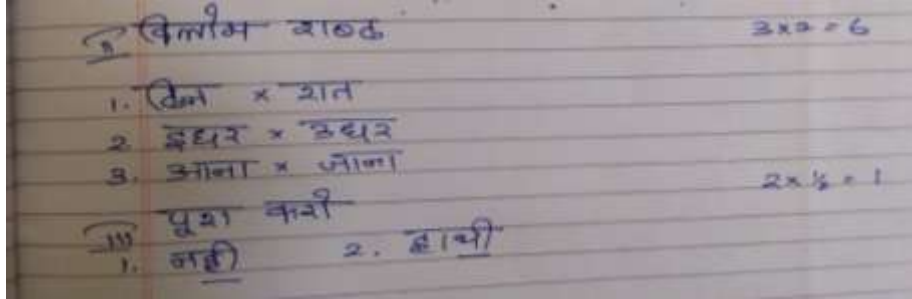 II विलोम शब्द 3x2=6
1. दिन x रात
2 इधर x उधर
3. आना x जाना
2x½=1
III पूरा करो
1. नदी 2. हाथी